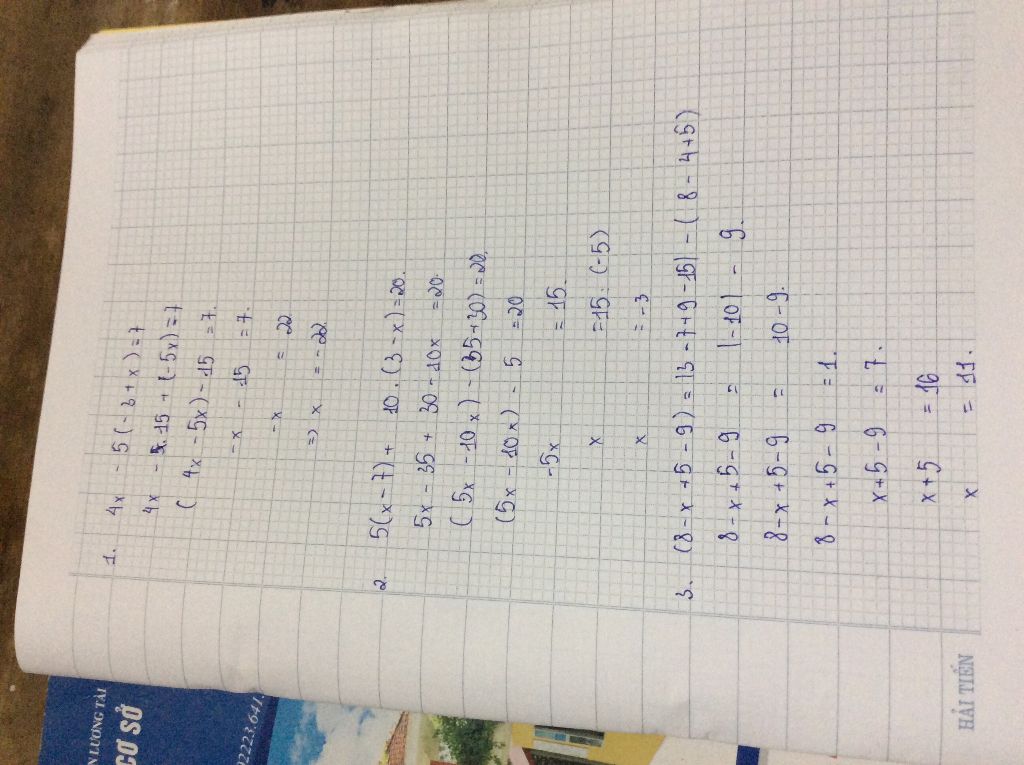 1. 4x - 5(-3+x) = 7
4x - 5.15 + (-5x) = 7
( 4x - 5x) - 15 = 7.
-x - 15 = 7.
-x = 22
=> x = -22
2. 5(x-7) + 10.(3-x) = 20.
5x - 35 + 30 - 10x = 20.
(5x - 10x) - (35+30) = 20.
(5x - 10x) - 5 = 20
-5x = 15.
x = 15 : (-5)
x = -3
3. (8-x+5-9) = |3-7+9-15| - (8-4+5)
8-x+5-9 = |-10| - 9.
8-x+5-9 = 10-9.
8-x+5-9 = 1.
x+5-9 = 7.
x+5 = 16
x = 11.
HẢI TIẾN
N LƯƠNG TÀI
CƠ SỞ
02223.641.